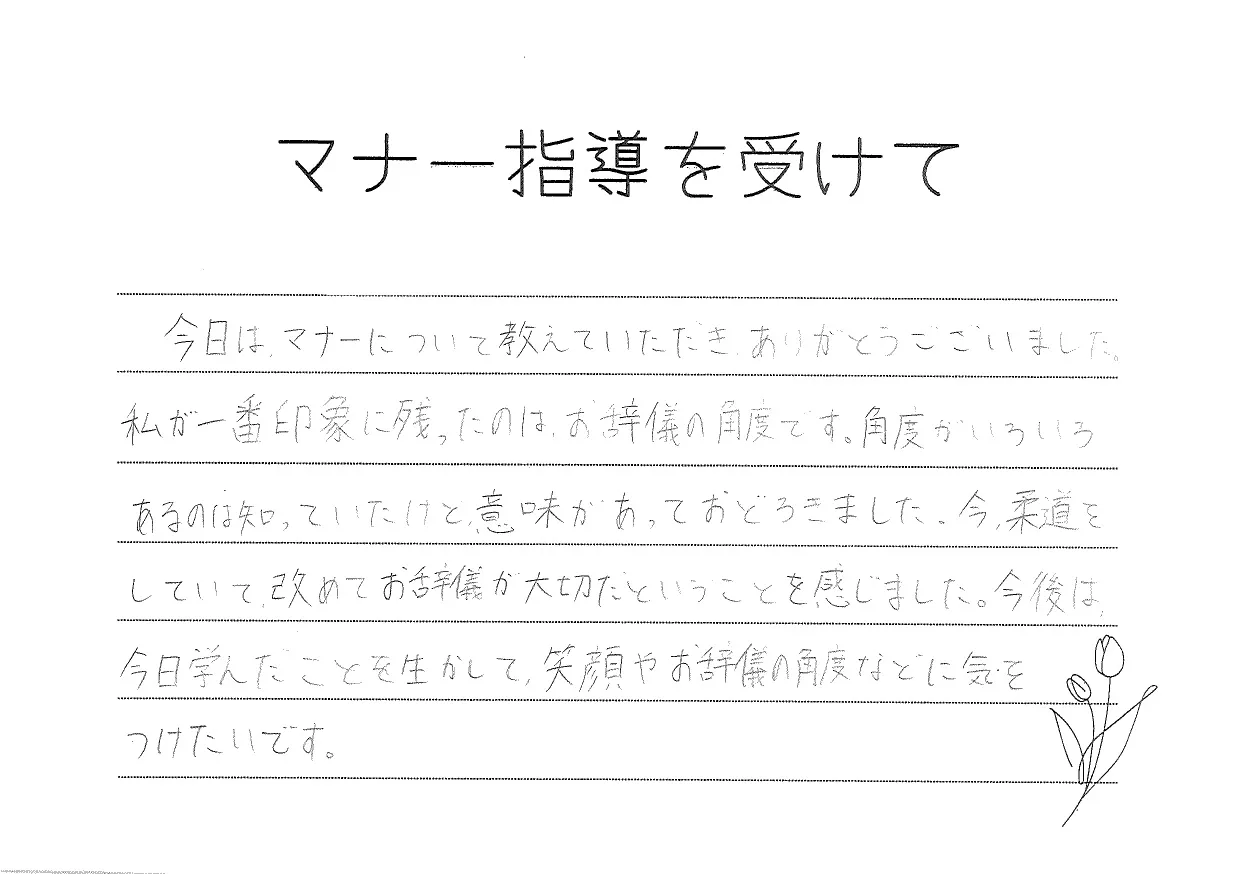 マナー指導を受けて
今日は、マナーについて教えていただき、ありがとうございました。
私が一番印象に残ったのは、お辞儀の角度です。角度がいろいろ
あるのは知っていたけど、意味があっておどろきました。今、柔道を
していて、改めてお辞儀が大切だということを感じました。今後は、
今日学んだことを生かして、笑顔やお辞儀の角度などに気を
つけたいです。